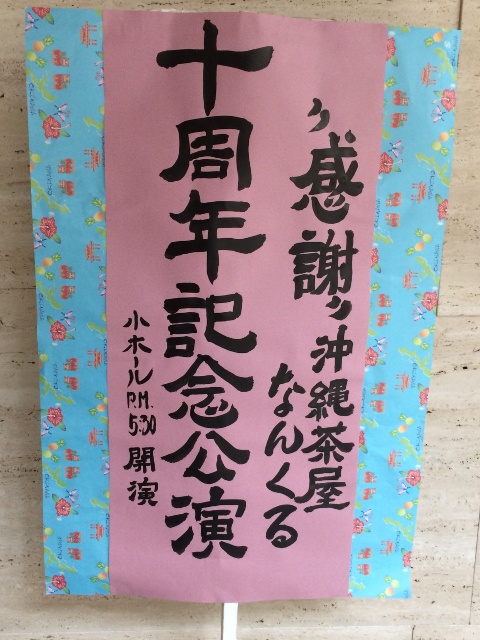 〃感謝〃沖縄茶屋
なんくる
十周年記念公演
小ホール P.M. 5:30 開演